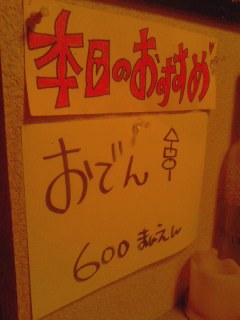 本日のおすすめ
おでん
600 まんえん